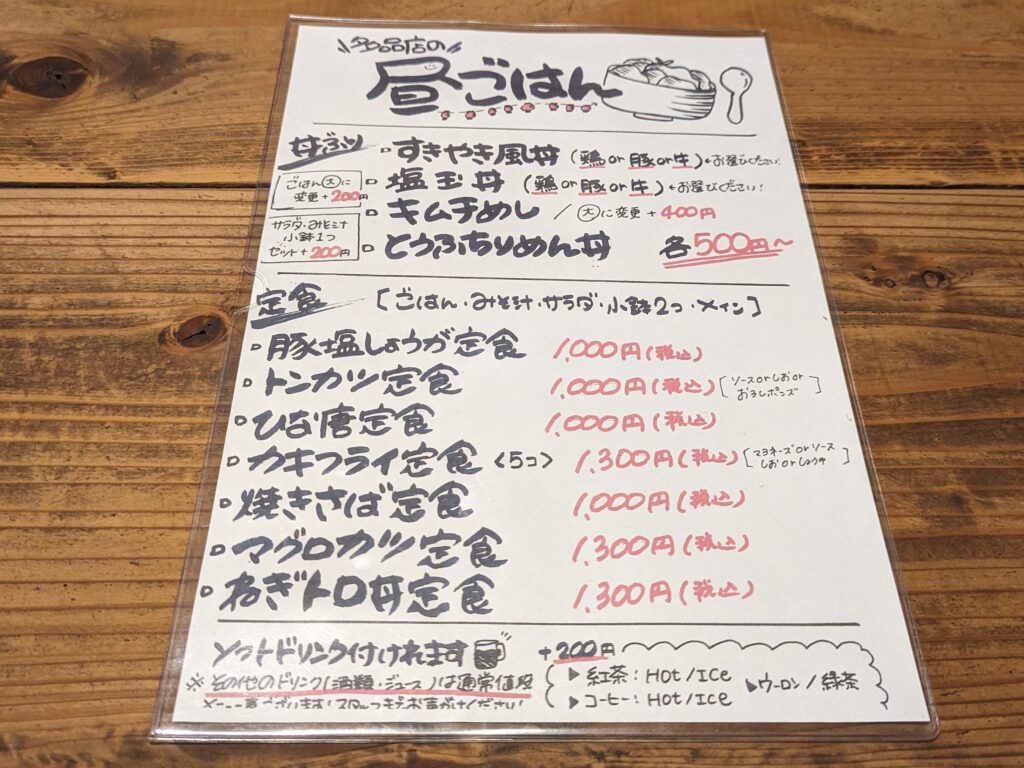 多品店の
昼ごはん
丼ぶり
ごはん(大)に
変更+200円
サラダ・みそ汁
小鉢1つ
セット+200円
すきやき風丼(鶏or豚or牛)←お選びください!
塩玉丼(鶏or豚or牛)←お選びください!
キムチめし/(大)に変更+400円
とうふちりめん丼 各500円~
定食 [ごはん・みそ汁・サラダ・小鉢2つ・メイン]
豚塩しょうが定食 1,000円(税込)
トンカツ定食 1,000円(税込) [ソースorしおor
おろしポンズ]
ひな唐定食 1,000円(税込)
カキフライ定食<5コ> 1,300円(税込) [マヨネーズorソース
しおorしょうゆ]
焼きさば定食 1,000円(税込)
マグロカツ定食 1,300円(税込)
ねぎトロ丼定食 1,300円(税込)
ソフトドリンク付けれます +200円
▶紅茶:Hot/Ice ▶ウーロン/緑茶
▶コーヒー:Hot/Ice
※その他のドリンク(酒類・ジュース)は通常値段
メニュー表ございます!スタッフまでお声がけください!